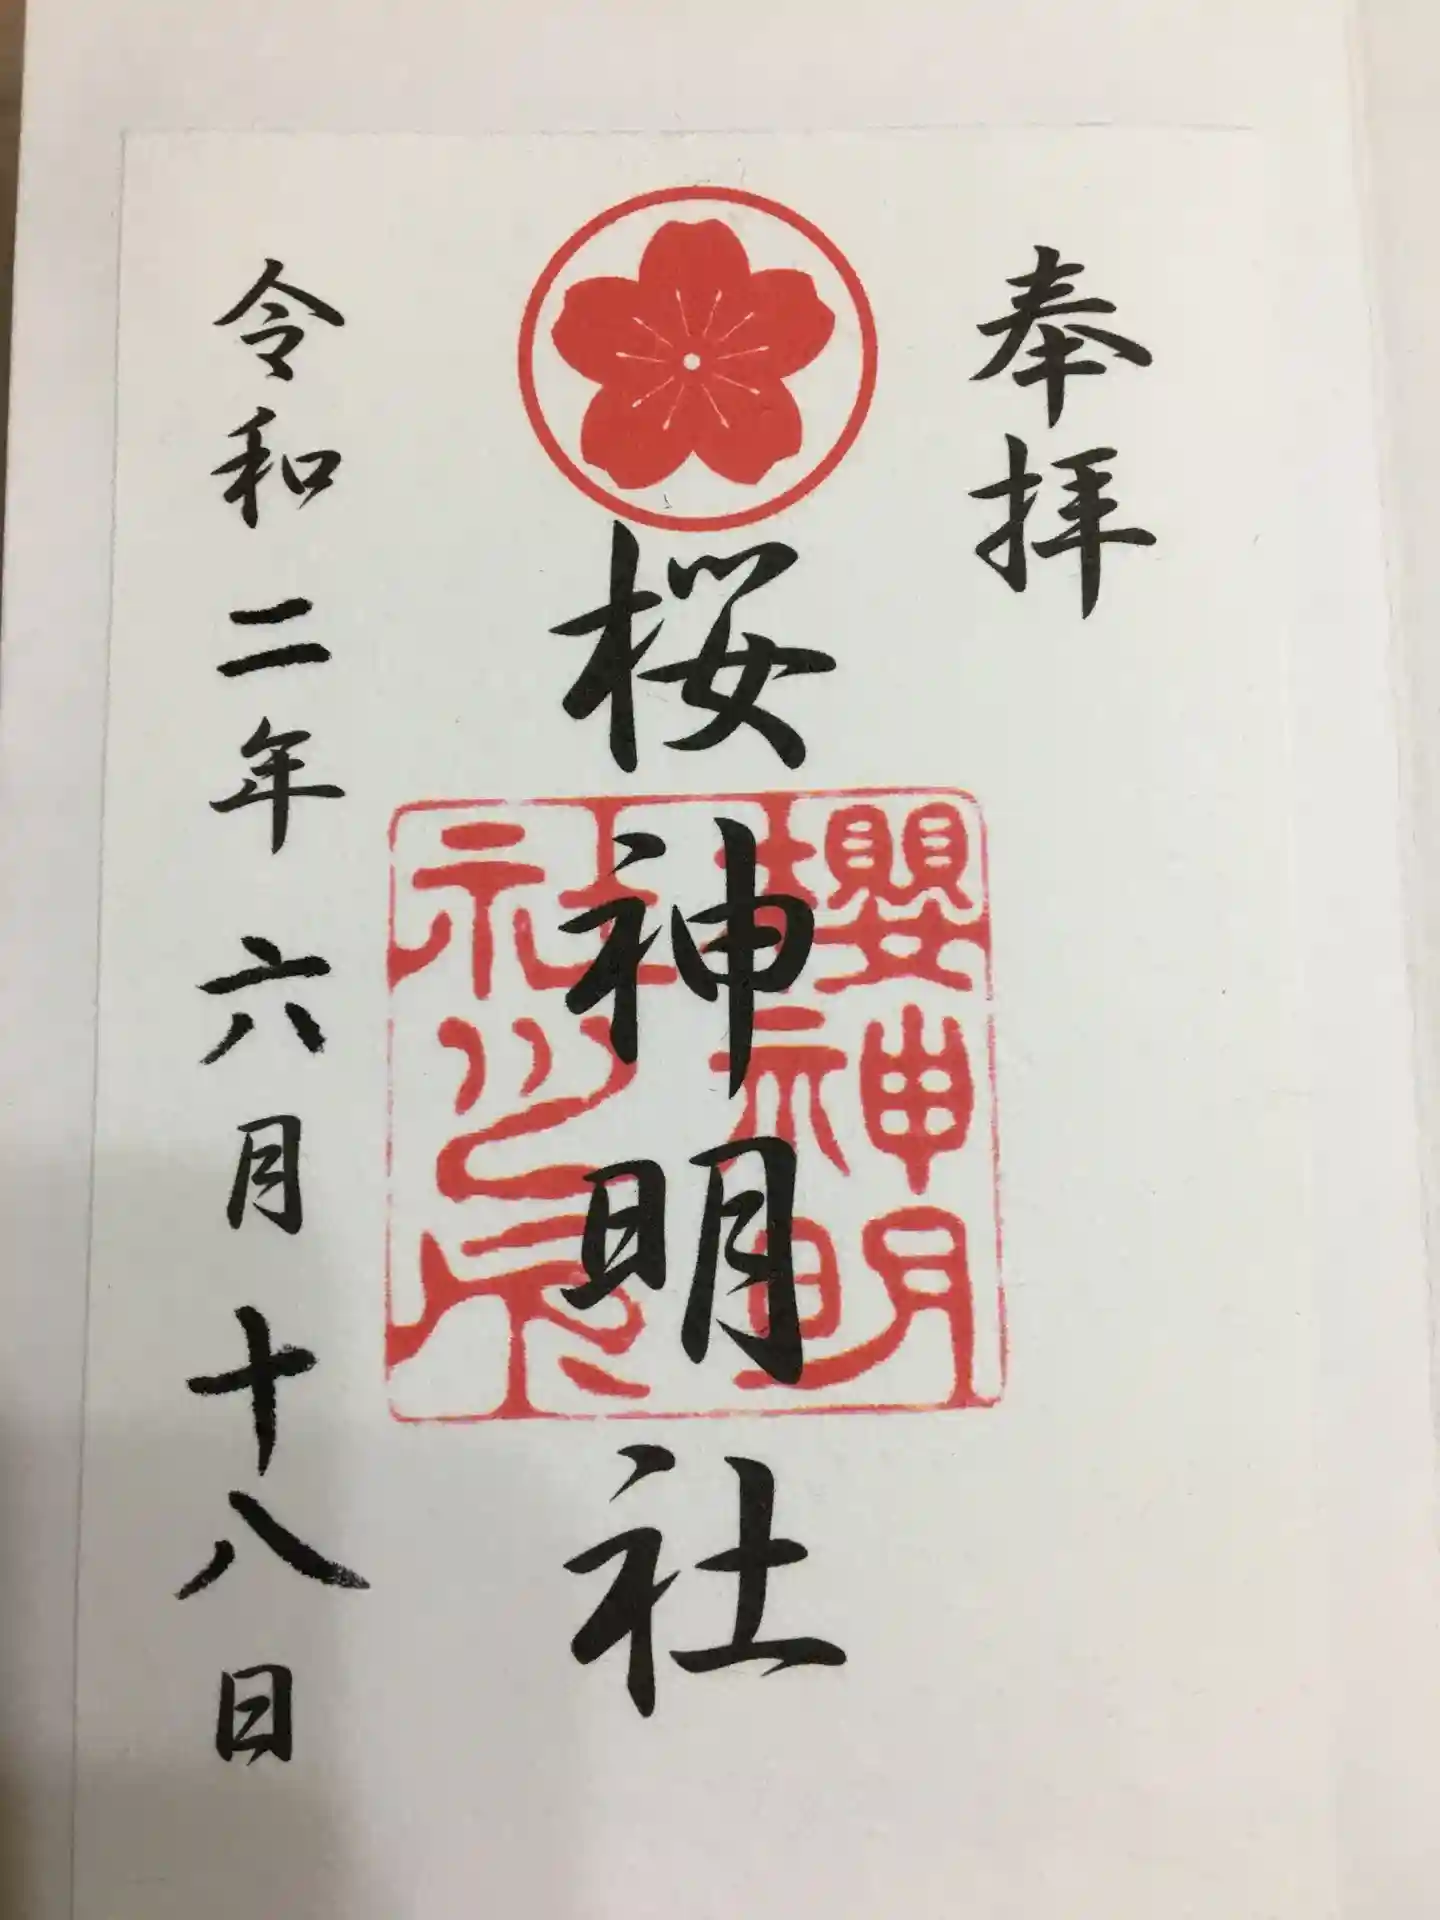 奉拝
桜神明社
櫻神明
社之印
令和二年六月十八日